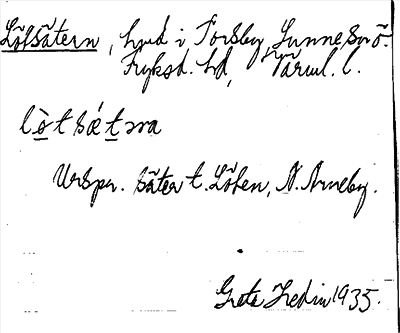 Löfsätern, hmd i Torsby, Sunne sn ö.
Fryksd. hd, Värml. l.
lòtsǽtəɳa
Urspr. säter t. Löfen, N. Arneby.
Greta Hedin 1935.